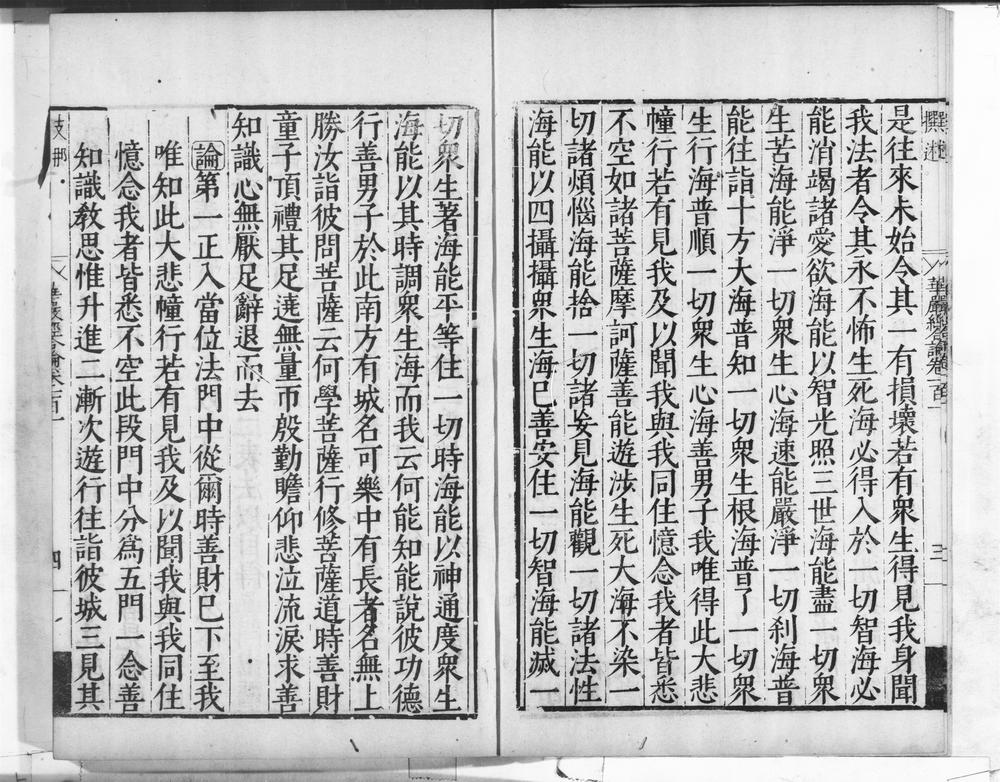 是往來未始令其一有損壞若有衆生得見我身聞
我法者令其永不怖生死海必得入於一切智海必
能消竭諸愛欲海能以智光照三世海能盡一切衆
生苦海能淨一切衆生心海速能嚴淨一切刹海普
能往詣十方大海普知一切衆生根海普了一切衆
生行海普順一切衆生心海善男子我唯得此大悲
幢行若有見我及以聞我與我同住憶念我者皆悉
不空如諸菩薩摩訶薩善能遊涉生死大海不染一
切諸煩惱海能捨一切諸妄見海能觀一切諸法性
海能以四攝攝衆生海已善安住一切智海能滅一
切衆生著海能平等住一切時海能以神通度衆生
海能以其時調衆生海而我云何能知能說彼功德
行善男子於此南方有城名可樂中有長者名無上
勝汝詣彼問菩薩云何學菩薩行修菩薩道時善財
童子頂禮其足遶無量帀殷勤瞻仰悲泣流淚求善
知識心無厭足辭退而去
論第一正入當位法門中從爾時善財已下至我
唯知此大悲幢行若有見我及以聞我與我同住
憶念我者皆悉不空此段門中分爲五門一念善
知識教思惟升進二漸次遊行往詣彼城三見其
四